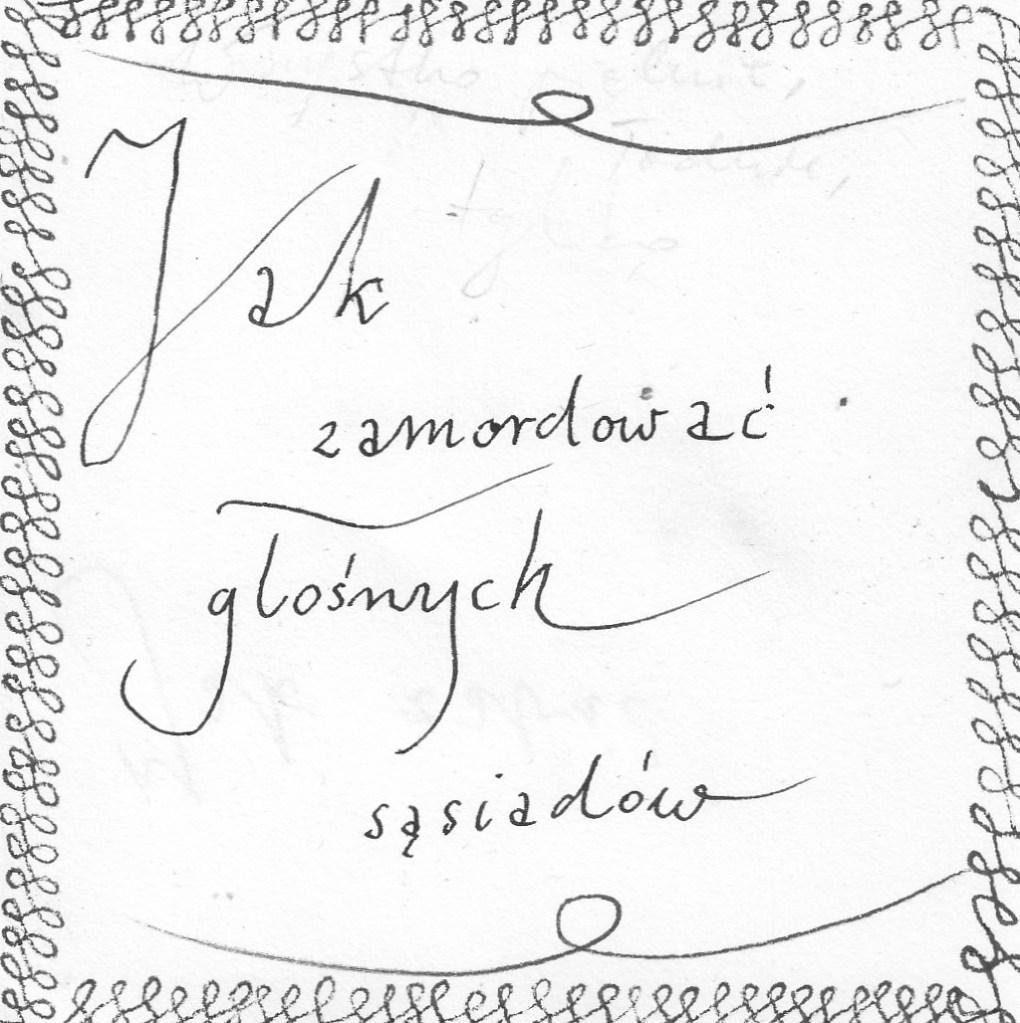 Jak
zamordować
głośnych
sąsiadów